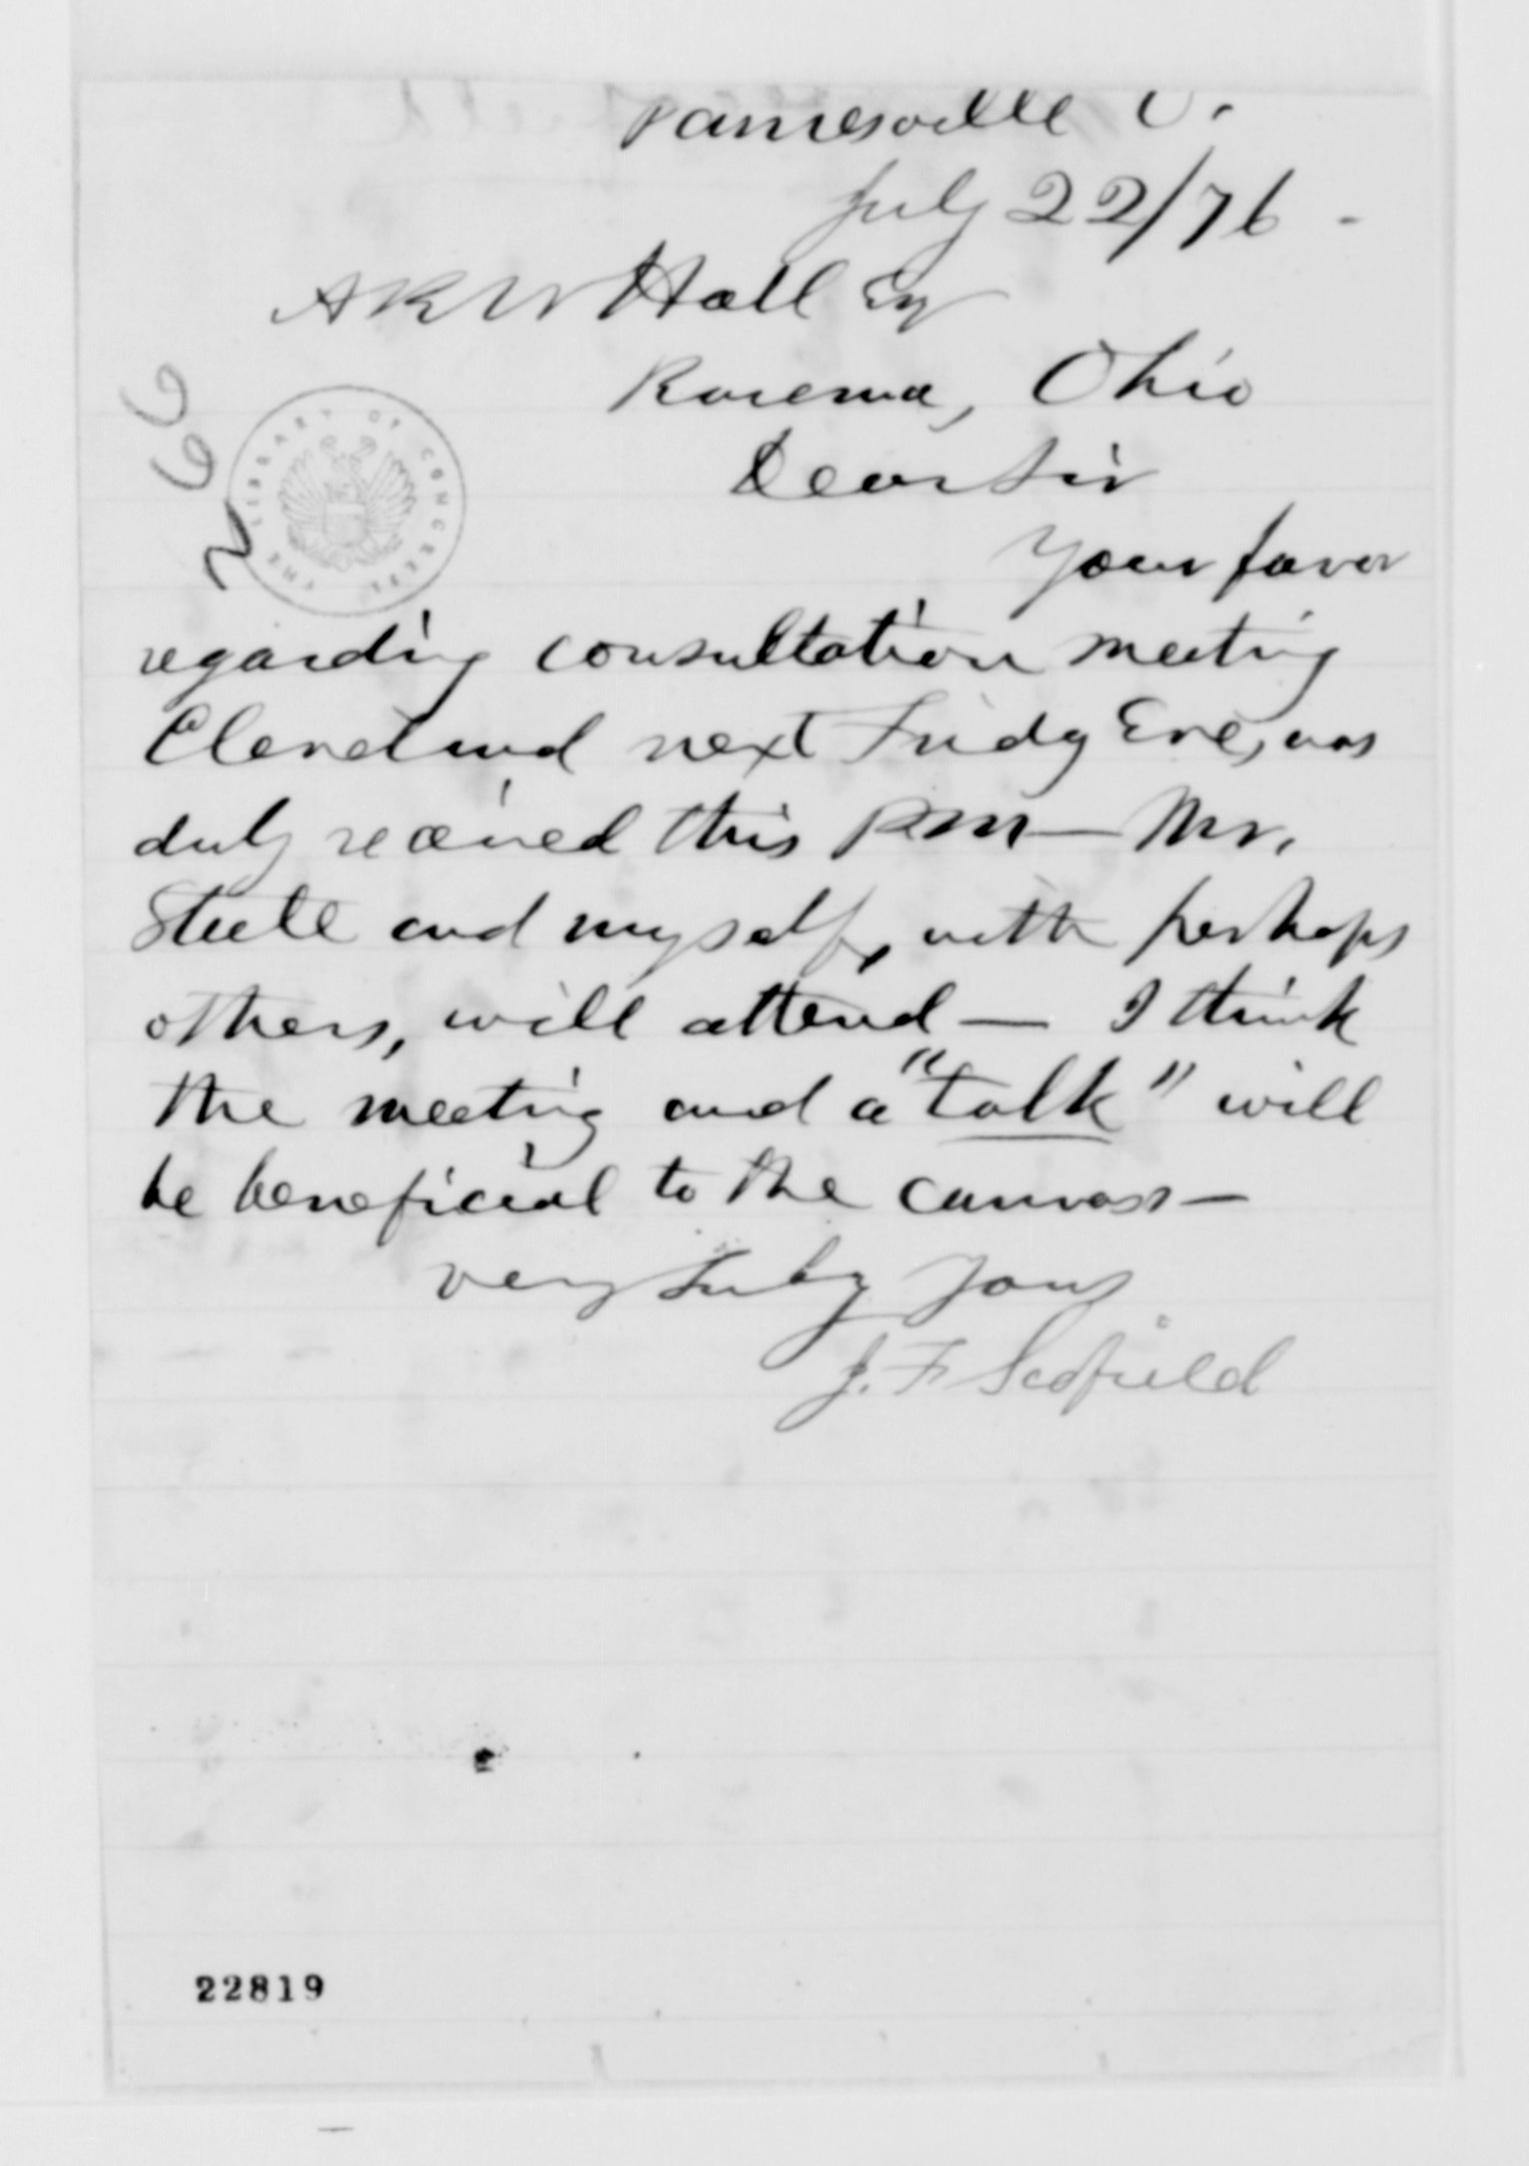 Painesville O.
July 22/76 -
Hall Esq
Ravenna, Ohio
Dear Sir
Your favor
regarding consultation meeting
Cleveland next Fridy Eve, was
duly received this PM — Mr.
Steele and myself, with perhaps
others, will attend — I think
the meeting and a "talk" will
be beneficial to the canvass —
Very truly yours
J. F. Scofield
THE LIBRARY OF CONGRESS
22819